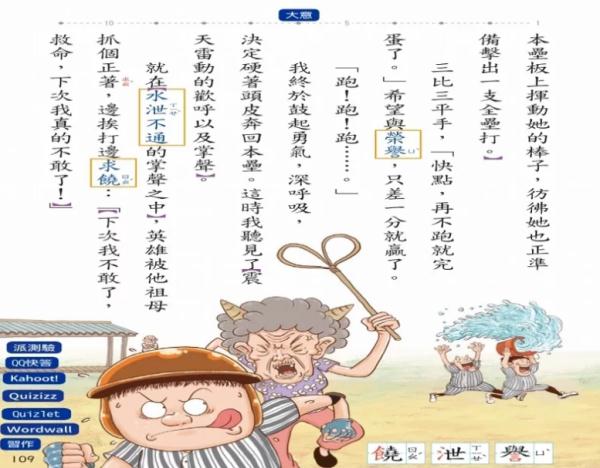 大意
1
5
10
本壘板上揮動她的棒子，彷彿她也正準
備擊出一支全壘打。】
三比三平手，「快點，再不跑就完
蛋了。」希望與榮譽，只差一分就贏了。
ㄩˋ
「跑！跑！跑……。」
我終於鼓起勇氣，深呼吸，
決定硬著頭皮奔回本壘。這時我聽見了震
天雷動的歡呼以及掌聲。
就在【水泄不通的掌聲之中】，英雄被他祖母
ㄒㄧㄝˋ
抓個正著，邊挨打邊求饒：【「下次我不敢了，
ㄖㄠˊ
救命，下次我真的不敢了！】」
派測驗
QQ快答
Kahoot!
Quizizz
Quizlet
Wordwall
習作
109
譽 ㄩˋ
泄 ㄒㄧㄝˋ
饒 ㄖㄠˊ